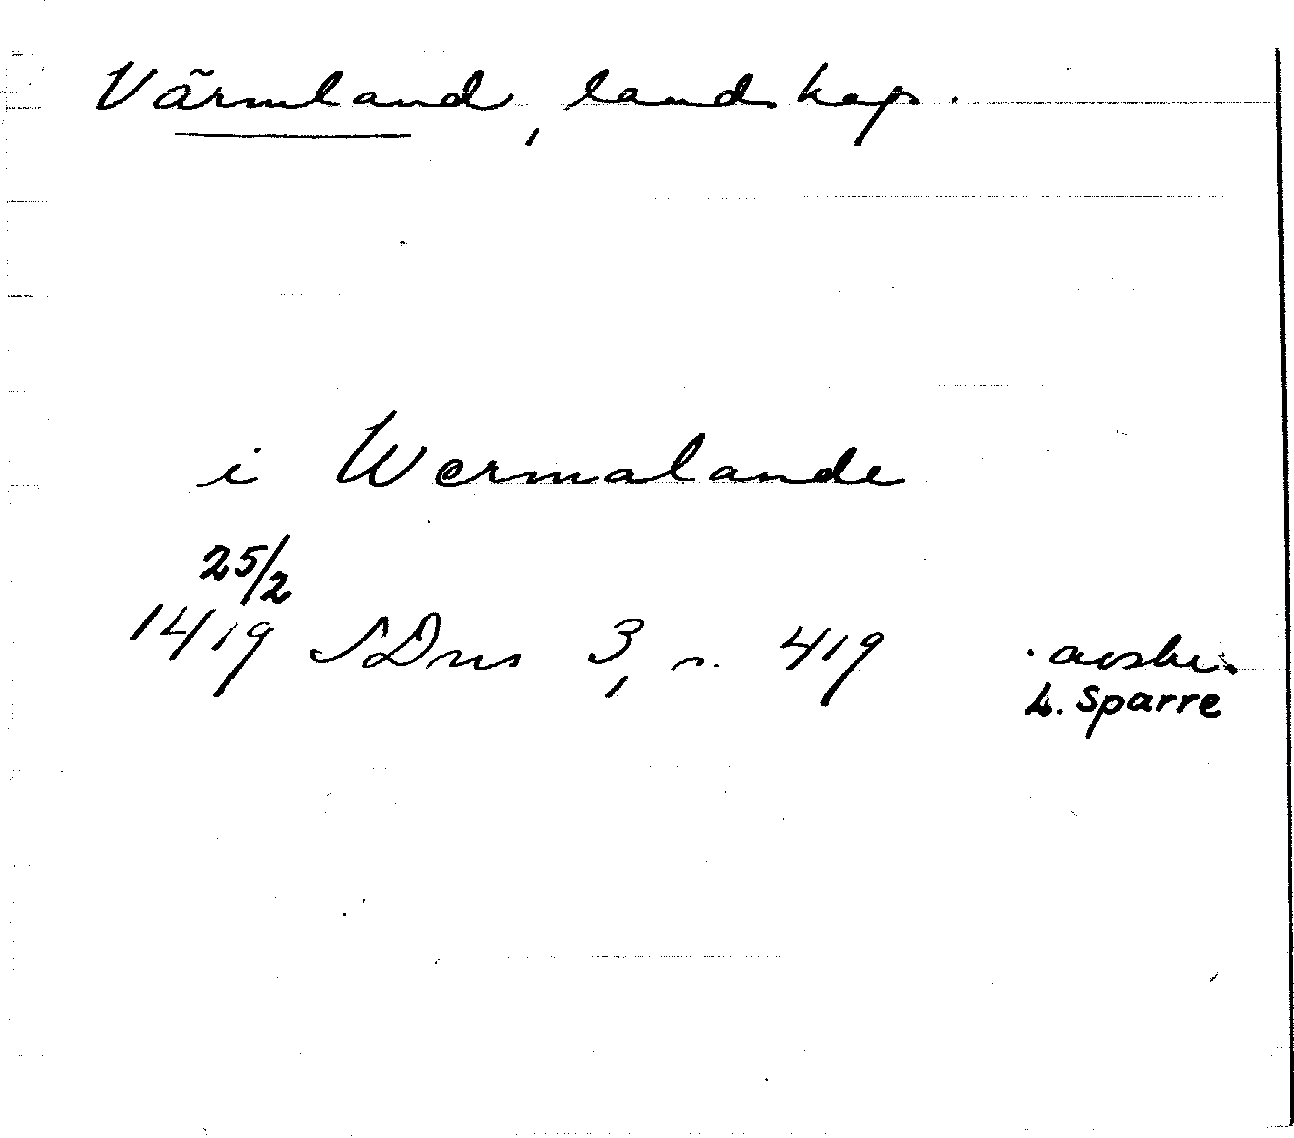 Värmland, landskap.
i Wermalande
25/2
1419 SDns 3, s. 419 avskr.
L. Sparre